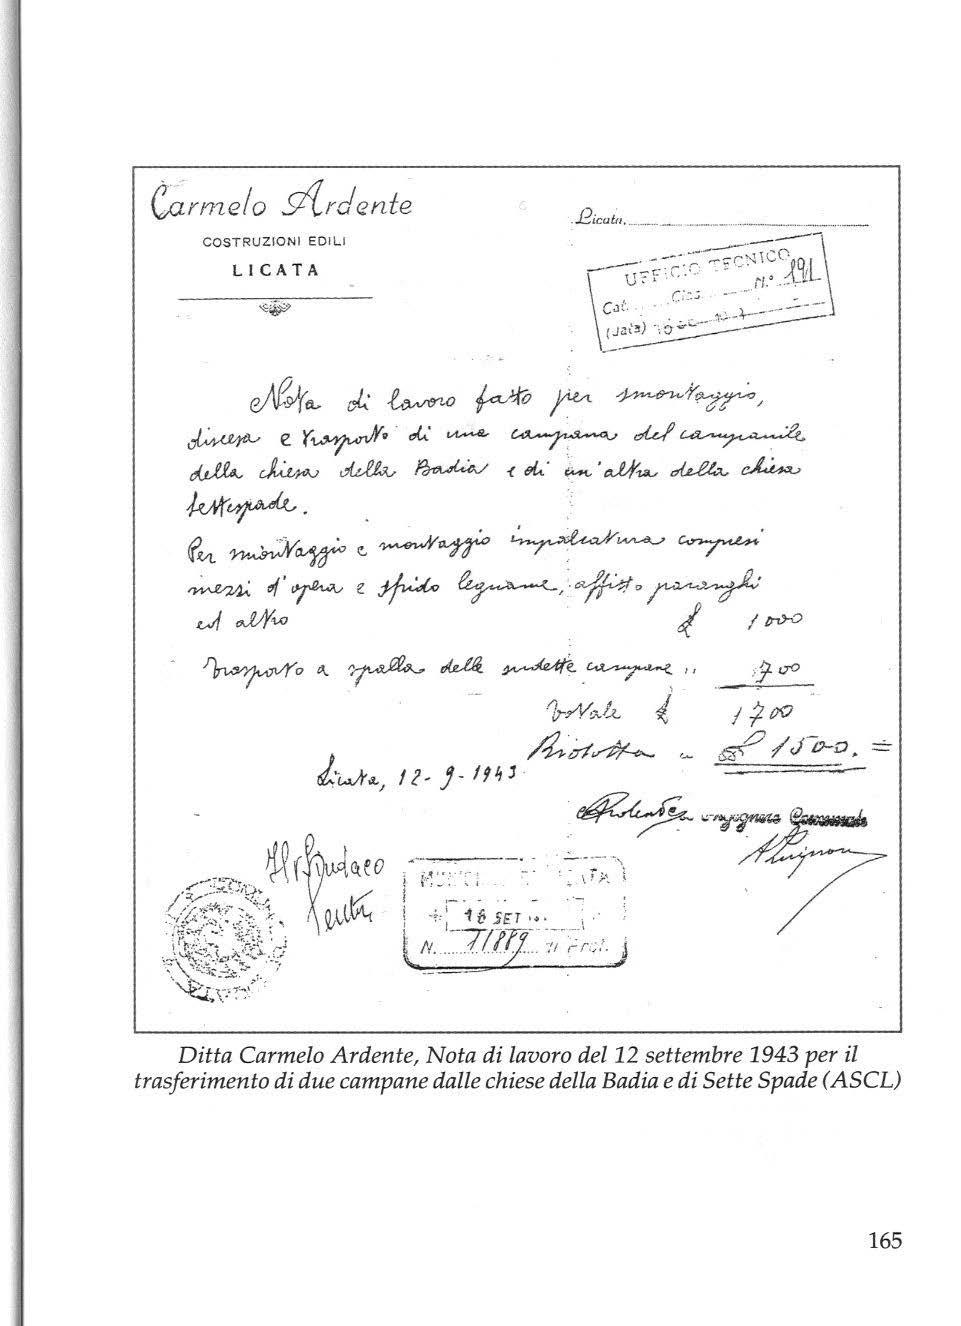 Carmelo Ardente
COSTRUZIONI EDILI
LICATA
Licata,
UFFICIO TECNICO
Cat. Clas. N.° 191
(data)
Nota di lavoro fatto per smontaggio,
discesa e trasporto di una campana del campanile
della chiesa della Badia e di un'altra della chiesa
settespade.
Per smontaggio e montaggio impalcatura compresi
mezzi d'opera e sfrido legname, affitto paranghi
ed altro £ 1000
Trasporto a spalla delle sudette campane " 700
Totale £ 1700
Ridotta a £ 1500. =
Licata, 12-9-1943
Ardente
Il Sindaco
MUNICIPIO DI LICATA
18 SET
N. 11889 di Prot.
Ditta Carmelo Ardente, Nota di lavoro del 12 settembre 1943 per il
trasferimento di due campane dalle chiese della Badia e di Sette Spade (ASCL)
165